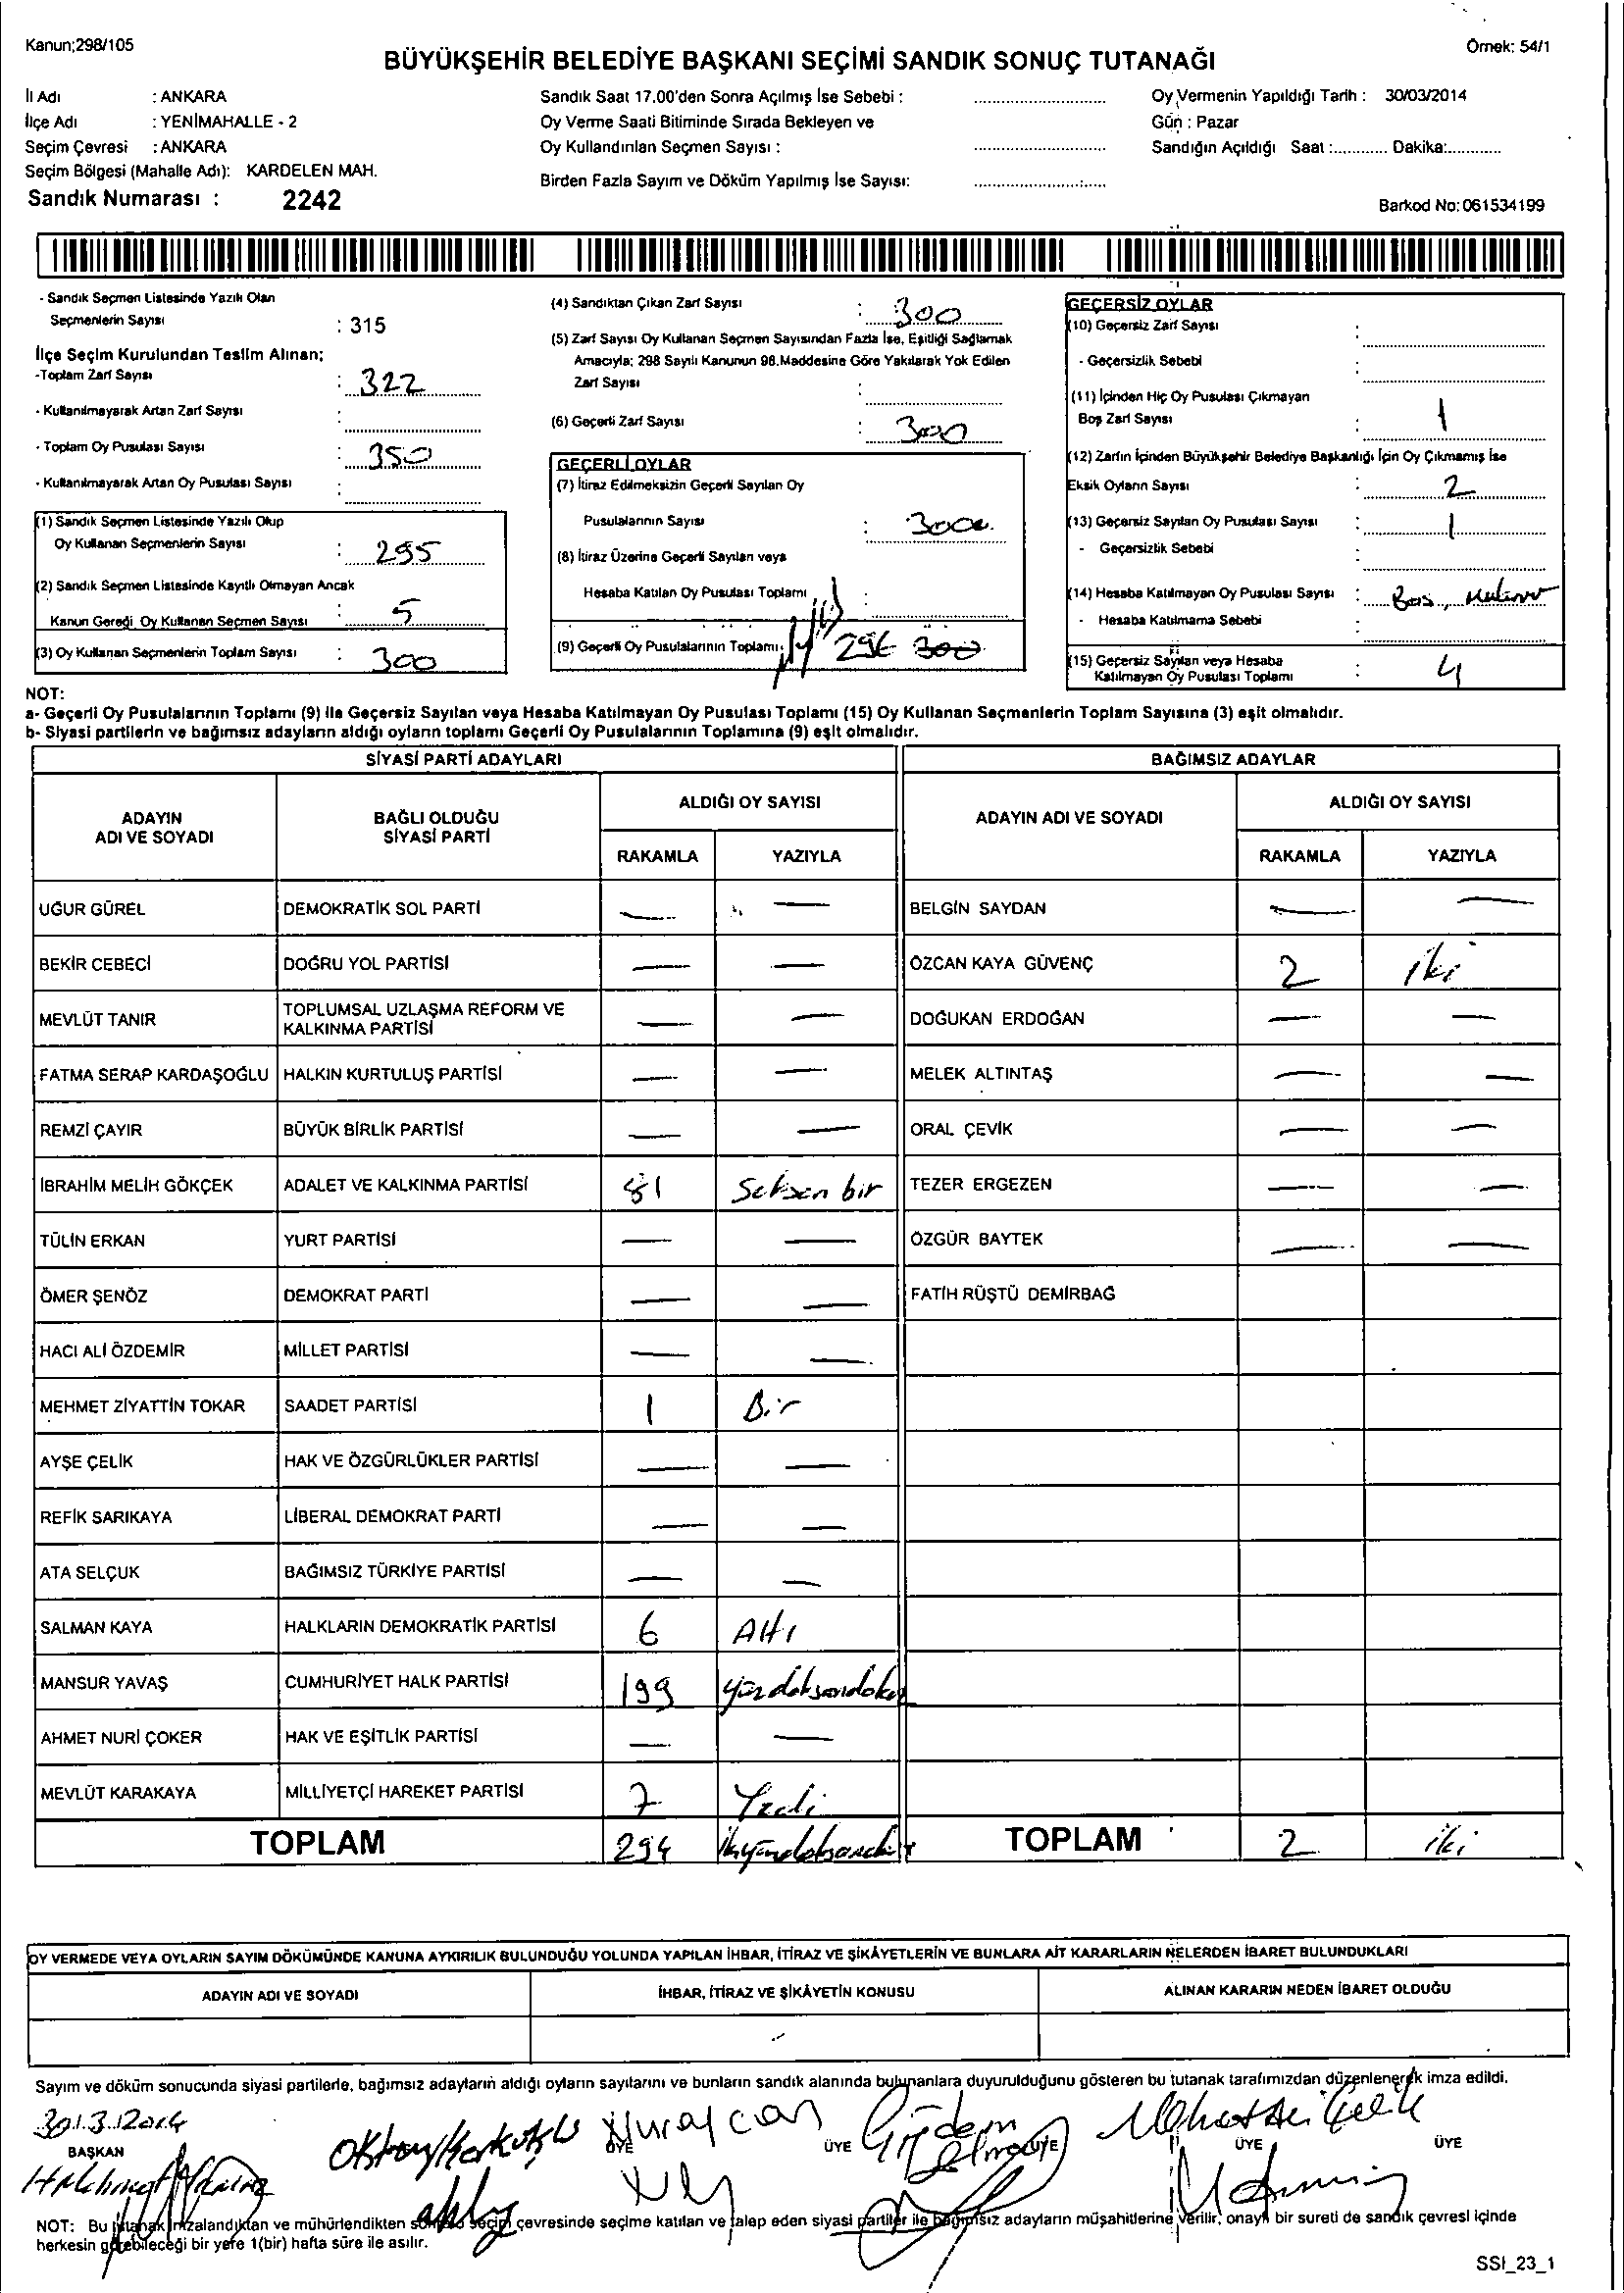 Kanun;298/105
Örnek: 54/1
BÜYÜKŞEHİR BELEDİYE BAŞKANI SEÇİMİ SANDIK SONUÇ TUTANAĞI
İl Adı : ANKARA
İlçe Adı : YENİMAHALLE - 2
Seçim Çevresi : ANKARA
Seçim Bölgesi (Mahalle Adı): KARDELEN MAH.
Sandık Numarası : 2242
Sandık Saat 17.00'den Sonra Açılmış İse Sebebi :
Oy Verme Saati Bitiminde Sırada Bekleyen ve
Oy Kullandırılan Seçmen Sayısı :
Birden Fazla Sayım ve Döküm Yapılmış İse Sayısı:
Oy Vermenin Yapıldığı Tarih : 30/03/2014
Gün : Pazar
Sandığın Açıldığı Saat :............ Dakika:............
Barkod No: 061534199
- Sandık Seçmen Listesinde Yazılı Olan
Seçmenlerin Sayısı : 315
İlçe Seçim Kurulundan Teslim Alınan;
-Toplam Zarf Sayısı : 322
- Kullanılmayarak Artan Zarf Sayısı :
- Toplam Oy Pusulası Sayısı : 350
- Kullanılmayarak Artan Oy Pusulası Sayısı :
(1) Sandık Seçmen Listesinde Yazılı Olup
Oy Kullanan Seçmenlerin Sayısı : 295
(2) Sandık Seçmen Listesinde Kayıtlı Olmayan Ancak
Kanun Gereği Oy Kullanan Seçmen Sayısı : 5
(3) Oy Kullanan Seçmenlerin Toplam Sayısı : 300
(4) Sandıktan Çıkan Zarf Sayısı : 300
(5) Zarf Sayısı Oy Kullanan Seçmen Sayısından Fazla İse, Eşitliği Sağlamak
Amacıyla; 298 Sayılı Kanunun 98.Maddesine Göre Yakılarak Yok Edilen
Zarf Sayısı :
(6) Geçerli Zarf Sayısı : 300
GEÇERLİ OYLAR
(7) İtiraz Edilmeksizin Geçerli Sayılan Oy
Pusulalarının Sayısı : 300
(8) İtiraz Üzerine Geçerli Sayılan veya
Hesaba Katılan Oy Pusulası Toplamı :
(9) Geçerli Oy Pusulalarının Toplamı: 296 300
GEÇERSİZ OYLAR
(10) Geçersiz Zarf Sayısı :
- Geçersizlik Sebebi :
(11) İçinden Hiç Oy Pusulası Çıkmayan
Boş Zarf Sayısı : 1
(12) Zarfın İçinden Büyükşehir Belediye Başkanlığı İçin Oy Çıkmamış İse
Eksik Oyların Sayısı : 2
(13) Geçersiz Sayılan Oy Pusulası Sayısı : 1
- Geçersizlik Sebebi :
(14) Hesaba Katılmayan Oy Pusulası Sayısı : Boş,
- Hesaba Katılmama Sebebi :
(15) Geçersiz Sayılan veya Hesaba
Katılmayan Oy Pusulası Toplamı : 4
NOT:
a- Geçerli Oy Pusulalarının Toplamı (9) ile Geçersiz Sayılan veya Hesaba Katılmayan Oy Pusulası Toplamı (15) Oy Kullanan Seçmenlerin Toplam Sayısına (3) eşit olmalıdır.
b- Siyasi partilerin ve bağımsız adayların aldığı oyların toplamı Geçerli Oy Pusulalarının Toplamına (9) eşit olmalıdır.
SİYASİ PARTİ ADAYLARI
BAĞIMSIZ ADAYLAR
ADAYIN ADI VE SOYADI
BAĞLI OLDUĞU SİYASİ PARTİ
ALDIĞI OY SAYISI
RAKAMLA YAZIYLA
ADAYIN ADI VE SOYADI
ALDIĞI OY SAYISI
RAKAMLA YAZIYLA
UĞUR GÜREL DEMOKRATİK SOL PARTİ — — BELGİN SAYDAN — —
BEKİR CEBECİ DOĞRU YOL PARTİSİ — — ÖZCAN KAYA GÜVENÇ 2 iki
MEVLÜT TANIR TOPLUMSAL UZLAŞMA REFORM VE KALKINMA PARTİSİ — — DOĞUKAN ERDOĞAN — —
FATMA SERAP KARDAŞOĞLU HALKIN KURTULUŞ PARTİSİ — — MELEK ALTINTAŞ — —
REMZİ ÇAYIR BÜYÜK BİRLİK PARTİSİ — — ORAL ÇEVİK — —
İBRAHİM MELİH GÖKÇEK ADALET VE KALKINMA PARTİSİ 81 Seksen bir TEZER ERGEZEN — —
TÜLİN ERKAN YURT PARTİSİ — — ÖZGÜR BAYTEK — —
ÖMER ŞENÖZ DEMOKRAT PARTİ — — FATİH RÜŞTÜ DEMİRBAĞ
HACI ALİ ÖZDEMİR MİLLET PARTİSİ — —
MEHMET ZİYATTİN TOKAR SAADET PARTİSİ 1 Bir
AYŞE ÇELİK HAK VE ÖZGÜRLÜKLER PARTİSİ — —
REFİK SARIKAYA LİBERAL DEMOKRAT PARTİ — —
ATA SELÇUK BAĞIMSIZ TÜRKİYE PARTİSİ — —
SALMAN KAYA HALKLARIN DEMOKRATİK PARTİSİ 6 Altı
MANSUR YAVAŞ CUMHURİYET HALK PARTİSİ 199 yüzdoksandokuz
AHMET NURİ ÇOKER HAK VE EŞİTLİK PARTİSİ — —
MEVLÜT KARAKAYA MİLLİYETÇİ HAREKET PARTİSİ 7 Yedi
TOPLAM 294 ikiyüzdoksandört TOPLAM 2 iki
OY VERMEDE VEYA OYLARIN SAYIM DÖKÜMÜNDE KANUNA AYKIRILIK BULUNDUĞU YOLUNDA YAPILAN İHBAR, İTİRAZ VE ŞİKÂYETLERİN VE BUNLARA AİT KARARLARIN NELERDEN İBARET BULUNDUKLARI
ADAYIN ADI VE SOYADI İHBAR, İTİRAZ VE ŞİKÂYETİN KONUSU ALINAN KARARIN NEDEN İBARET OLDUĞU
Sayım ve döküm sonucunda siyasi partilerle, bağımsız adayların aldığı oyların sayılarını ve bunların sandık alanında bulunanlara duyurulduğunu gösteren bu tutanak tarafımızdan düzenlenerek imza edildi.
30.3.2014
BAŞKAN ÜYE ÜYE ÜYE ÜYE ÜYE
Nuray can
Çiğdem
NOT: Bu tutanak imzalandıktan ve mühürlendikten sonra seçim çevresinde seçime katılan ve talep eden siyasi partiler ile bağımsız adayların müşahitlerine verilir, onaylı bir sureti de sandık çevresi içinde
herkesin görebileceği bir yere 1(bir) hafta süre ile asılır.
SSI_23_1